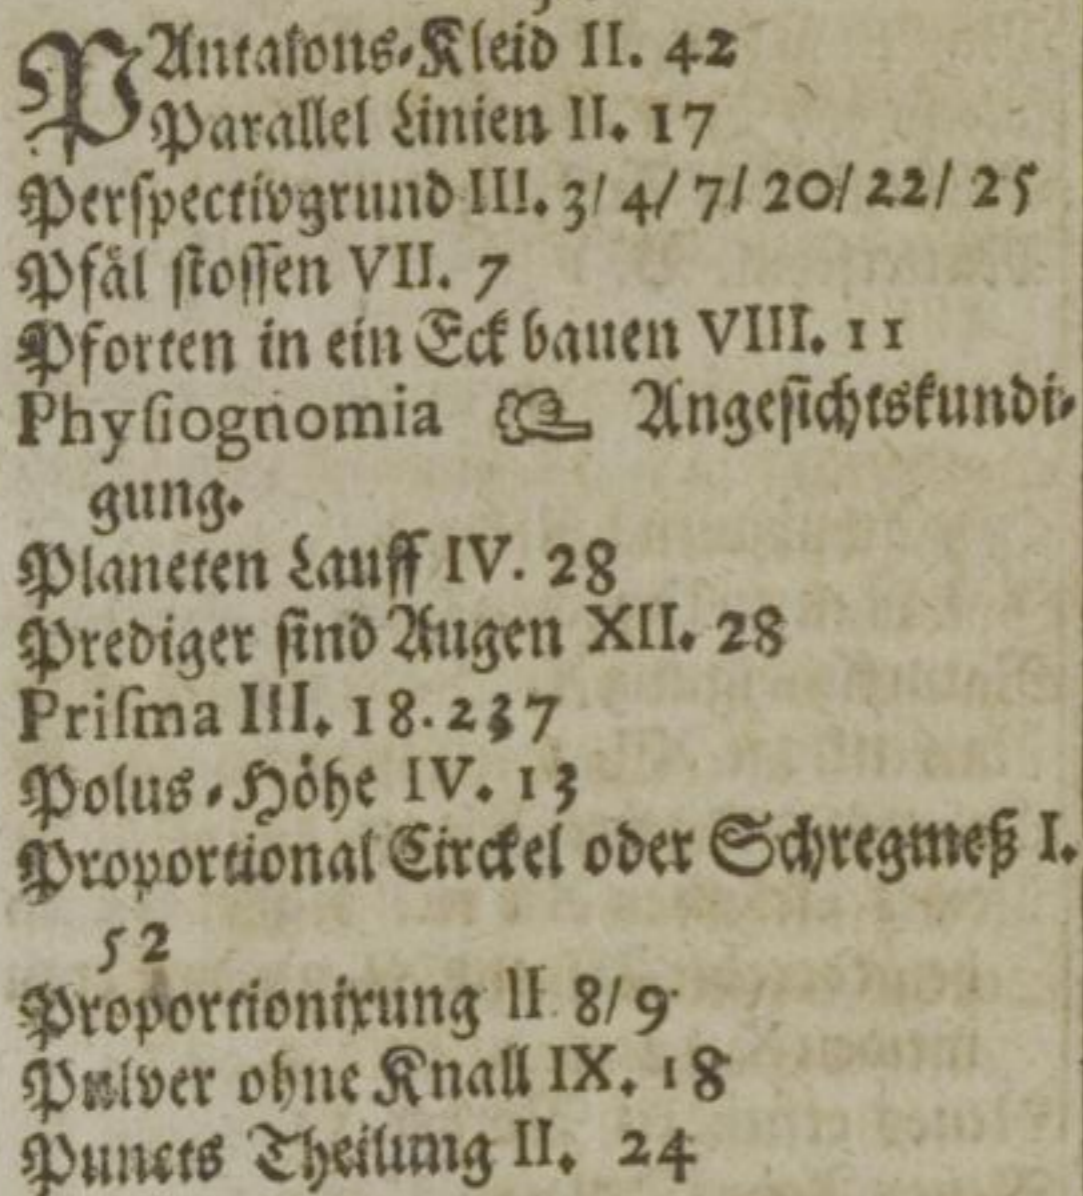 PAntalons-Kleid II. 42
Parallel Linien II. 17
Perſpectivgrund III. 3/ 4/ 7/ 20/ 22/ 25
Pfäl ſtoſſen VII. 7
Pforten in ein Eck bauen VIII. 11
Phyſiognomia ☞ Angeſichtskundi-
gung.
Planeten Lauff IV. 28
Prediger ſind Augen XII. 28
Priſma III. 18. 237
Polus-Höhe IV. 13
Proportional Circkel oder Schregmeß I.
52
Proportionirung II 8/ 9
Pulver ohne Knall IX. 18
Puncts Theilung II. 24